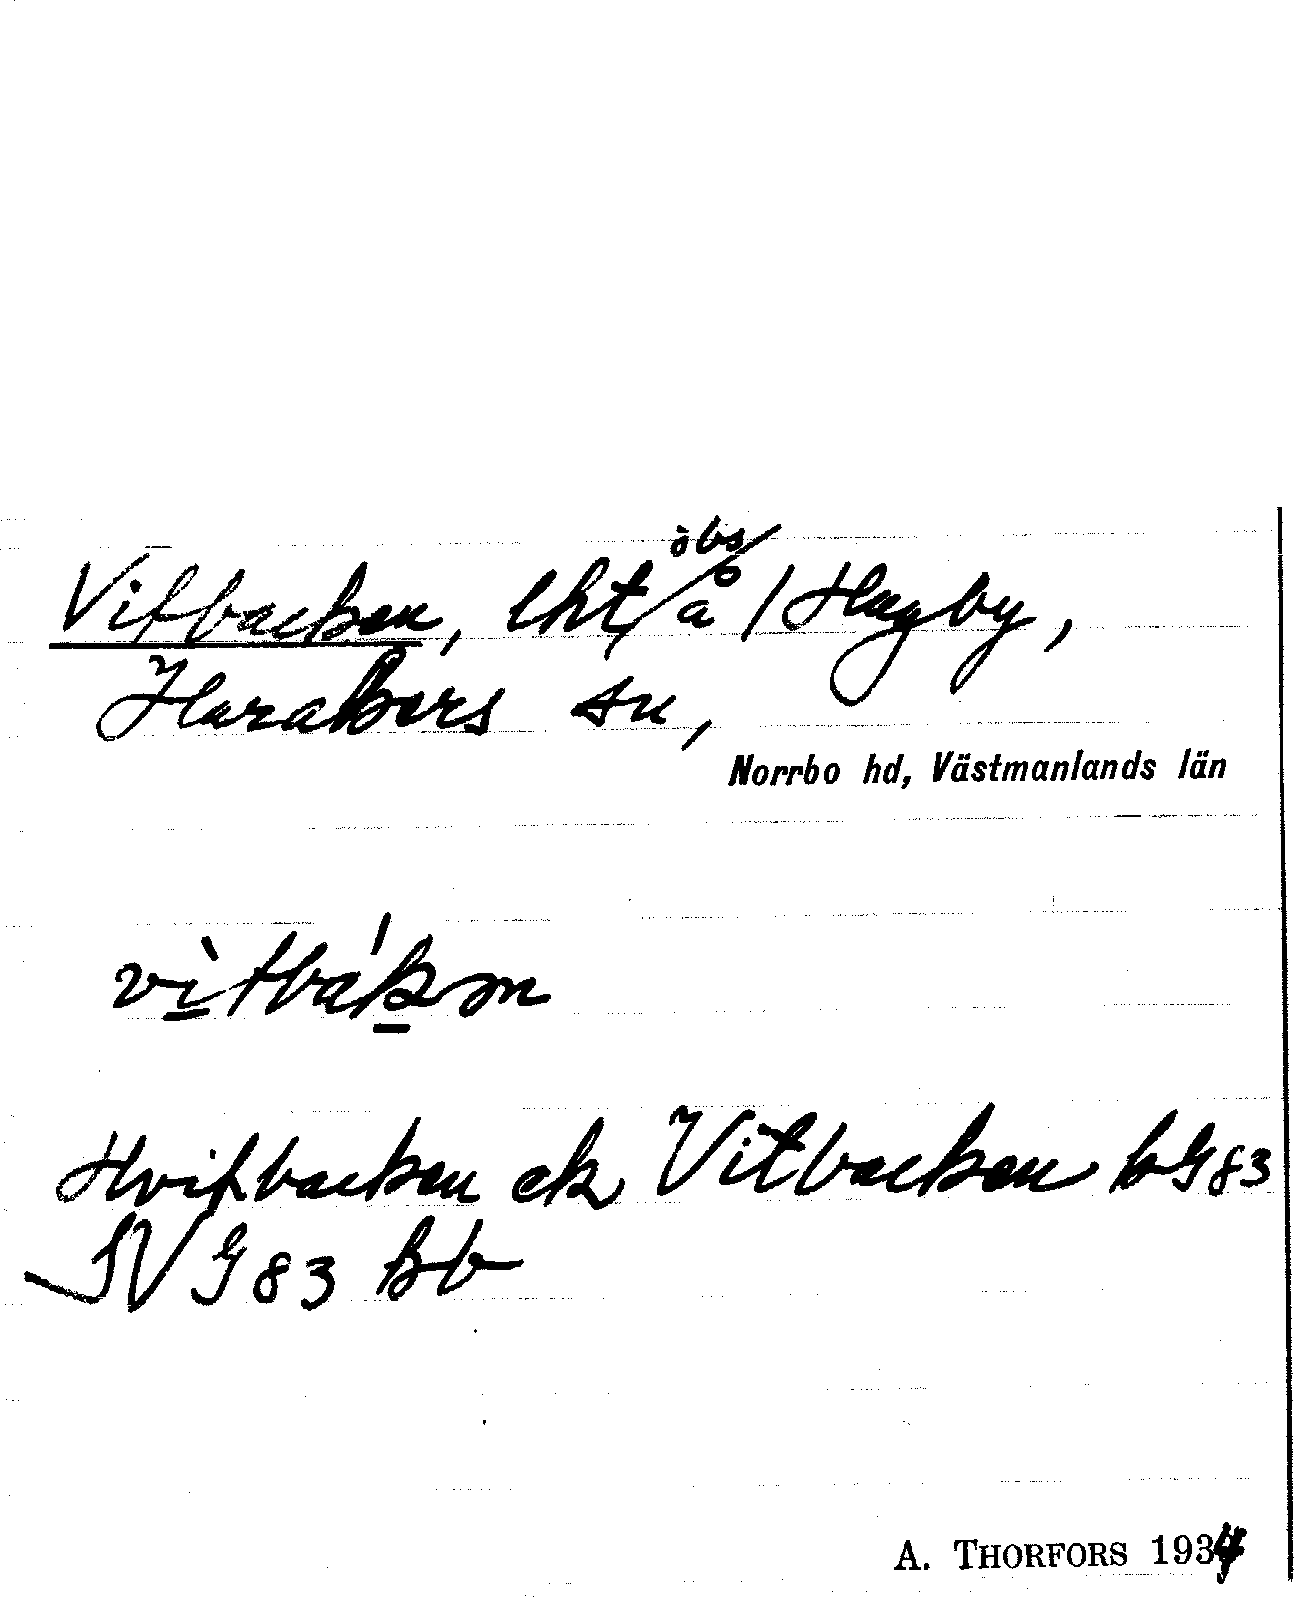 Vitbacken, lht / öbs / å / Hagby,
Harakers sn,
Norrbo hd, Västmanlands län
vìtbákən
Hvitbacken ek Vitbacken bG83
JVG83 Bb
A. THORFORS 1934